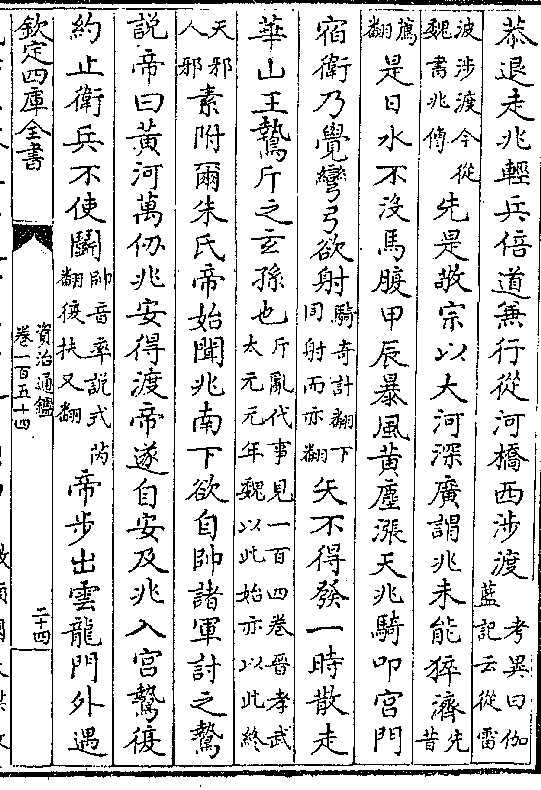 恭退走兆輕兵倍道兼行從河橋西涉渡考異曰伽藍記云從雷
波涉渡今從魏書兆傳先是敬宗以大河深廣謂兆未能猝濟先昔
薦翻是日水不沒馬腹甲辰暴風黃塵漲天兆騎叩宮門
宿衛乃覺彎弓欲射騎奇計翻下同射而亦翻矢不得發一時散走
華山王鷙斤之玄孫也斤亂代事見一百四卷晉孝武太元元年魏以此始亦以此終
天邪人邪素附爾朱氏帝始聞兆南下欲自帥諸軍討之鷙
說帝曰黃河萬仞兆安得渡帝遂自安及兆入宮鷙復
約止衛兵不使鬭帥音率說式芮翻復扶又翻帝步出雲龍門外遇
欽定四庫全書
資治通鑑
卷一百五十四
二十四